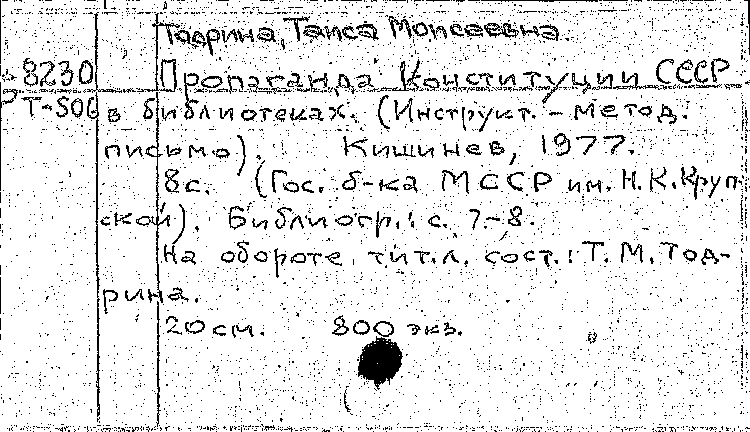 Тодрина, Таиса Моисеевна.
8230 Пропаганда Конституции СССР
Т-506 в библиотеках. (Инструкт.-метод.
письмо). Кишинев, 1977.
8с. (Гос. б-ка МССР им. Н.К.Круп-
ской). Библиогр.: с. 7-8.
На обороте тит.л. сост.: Т.М.Тод-
рина.
20см. 800 экз.